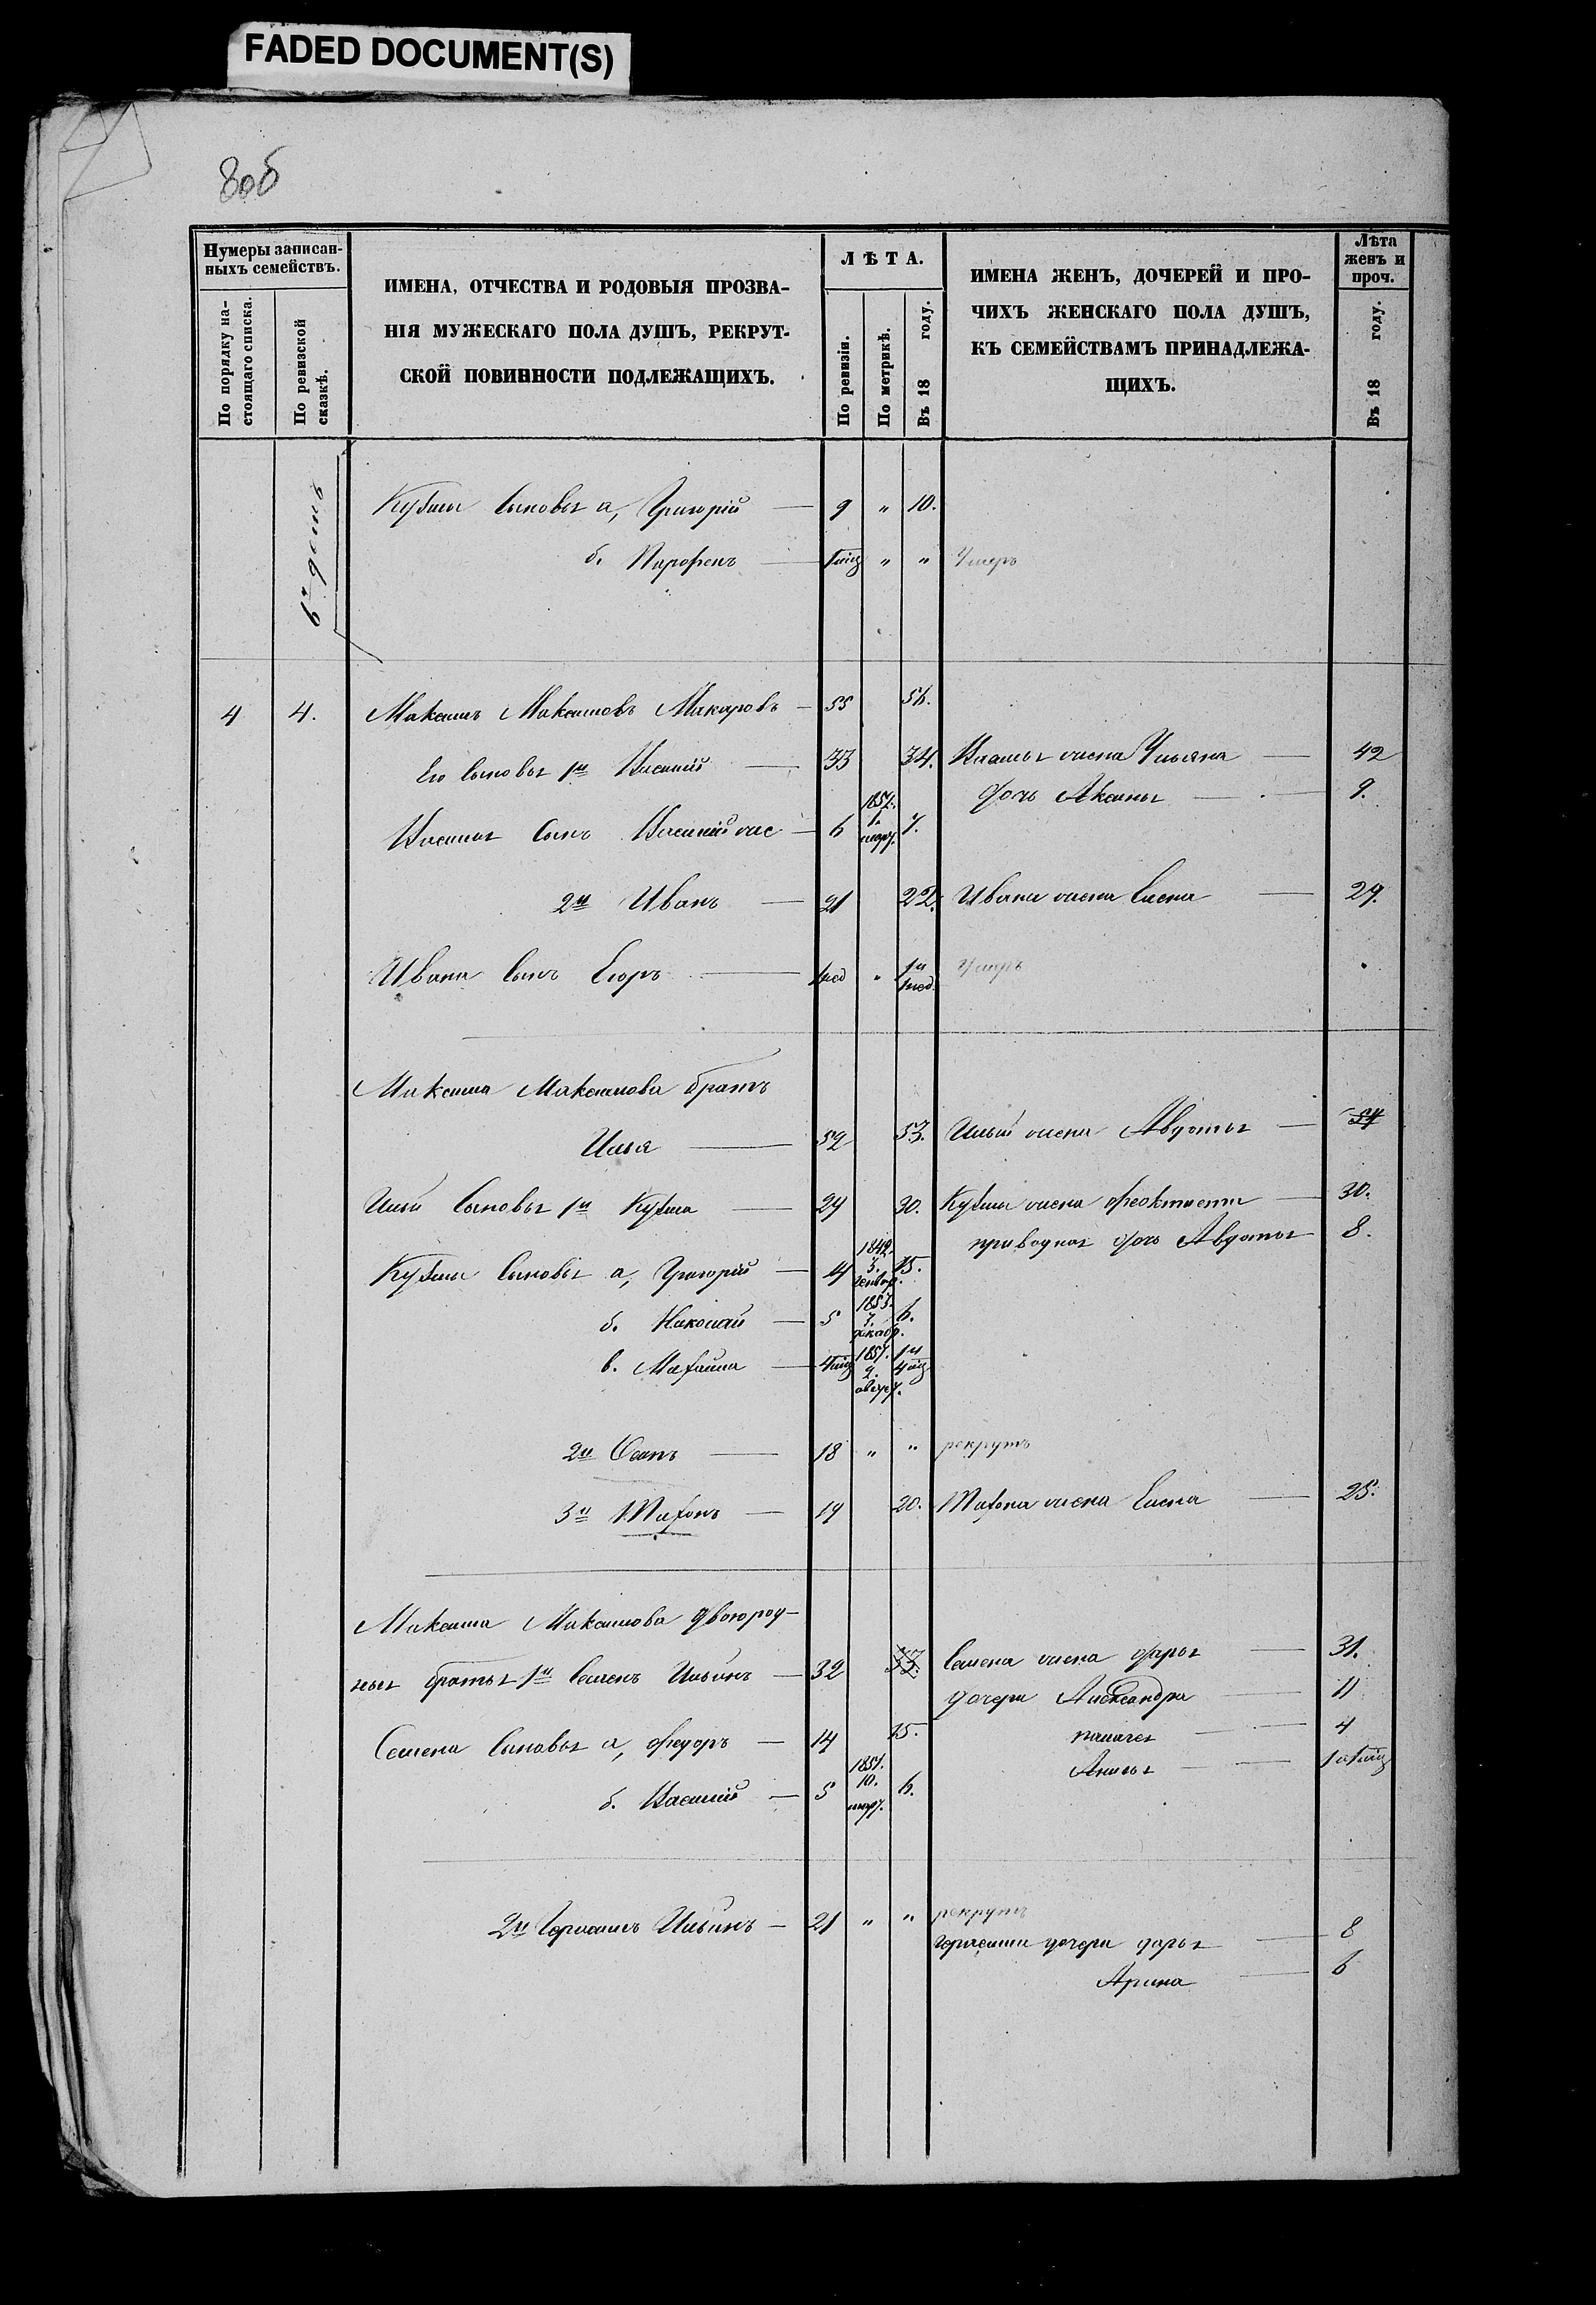 FADED DOCUMENT(S)
8об
Нумеры записан-
ныхъ семействъ.
По порядку на-
стоящаго списка.
По ревизской
сказкѣ.
ИМЕНА, ОТЧЕСТВА И РОДОВЫЯ ПРОЗВА-
НІЯ МУЖЕСКАГО ПОЛА ДУШЪ, РЕКРУТ-
СКОЙ ПОВИННОСТИ ПОДЛЕЖАЩИХЪ.
ЛѢТА.
По ревизіи.
По метрикѣ.
Въ 18 году.
ИМЕНА ЖЕНЪ, ДОЧЕРЕЙ И ПРО-
ЧИХЪ ЖЕНСКАГО ПОЛА ДУШЪ,
КЪ СЕМЕЙСТВАМЪ ПРИНАДЛЕЖА-
ЩИХЪ.
Лѣта
женъ и
проч.
Въ 18 году.
Кузмы Сыновья а, Григорій — 9 " 10.
б. Парфенъ — " " Умеръ
4 4. Максимъ Максимовъ Макаровъ — 55 56.
Его Сыновья 1й Василій — 33 34. жена Ульяна — 42
дочь Аксинья — 9.
Сынъ Василій же — 6 7.
2й Иванъ — 21 22. Ивана жена Елена — 29.
Ивана Сынъ Егоръ — " Умеръ
Максима Максимова братъ
Илья — 52 53. Ильи жена Авдотья — 54
Ильи Сыновья 1й Кузма — 29 30. Кузмы жена Феоктиста — 30.
приводная дочь Авдотья 8.
Кузмы Сыновья а, Григорій — 14 3. генвар. 15.
б. Николай — 5 7. декабр. 6.
в. — 1857. 2. август.
2й Осипъ — 18 " " рекрутъ
3й — 19 20. жена Елена — 25.
Максима Максимова двоюрод-
ные братья 1й Семенъ Ильинъ — 32 33. Семена жена Дарья — 31.
дочери Александра — 11
Семена Сыновья а, Федоръ — 14 15. — 4
б. Василій — 5 10. март. 6.
2й Герасимъ Ильинъ — 21 " " рекрутъ
Герасима дочери Дарья — 8
Арина — 6